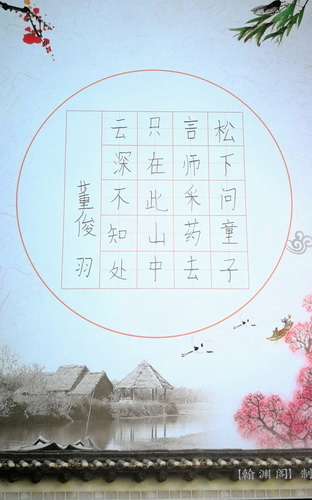 松下问童子
言师采药去
只在此山中
云深不知处
董俊羽
【翰渊阁】制